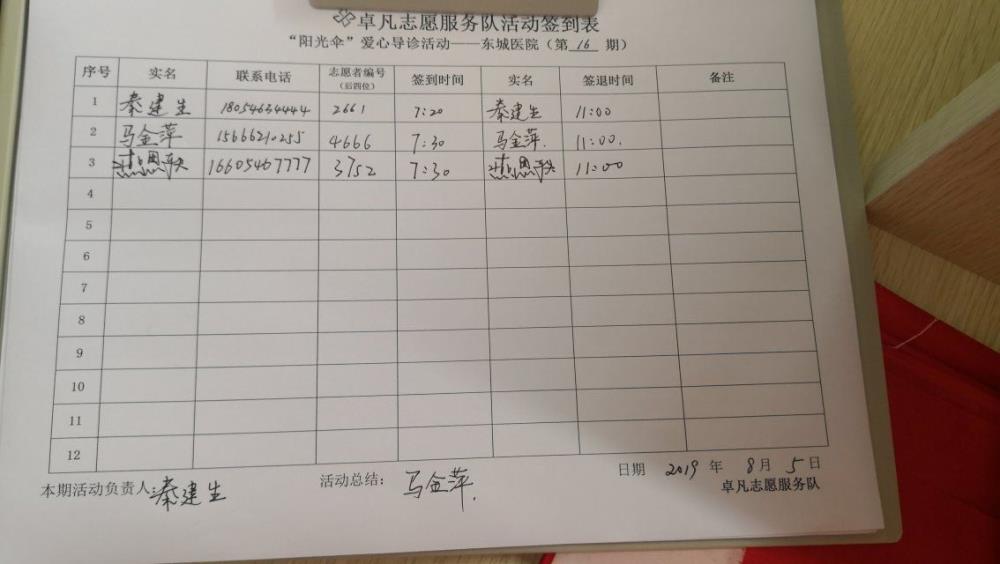 卓凡志愿服务队活动签到表
“阳光伞”爱心导诊活动——东城医院（第 16 期）
序号 实名 联系电话 志愿者编号（后四位） 签到时间 实名 签退时间 备注
1 秦建生 18054634444 2661 7:20 秦建生 11:00
2 马金萍 15666210255 4666 7:30 马金萍. 11:00.
3 16605467777 3752 7:30 11:00
4
5
6
7
8
9
10
11
12
本期活动负责人: 秦建生 活动总结: 马金萍. 日期 2019 年 8 月 5 日
卓凡志愿服务队